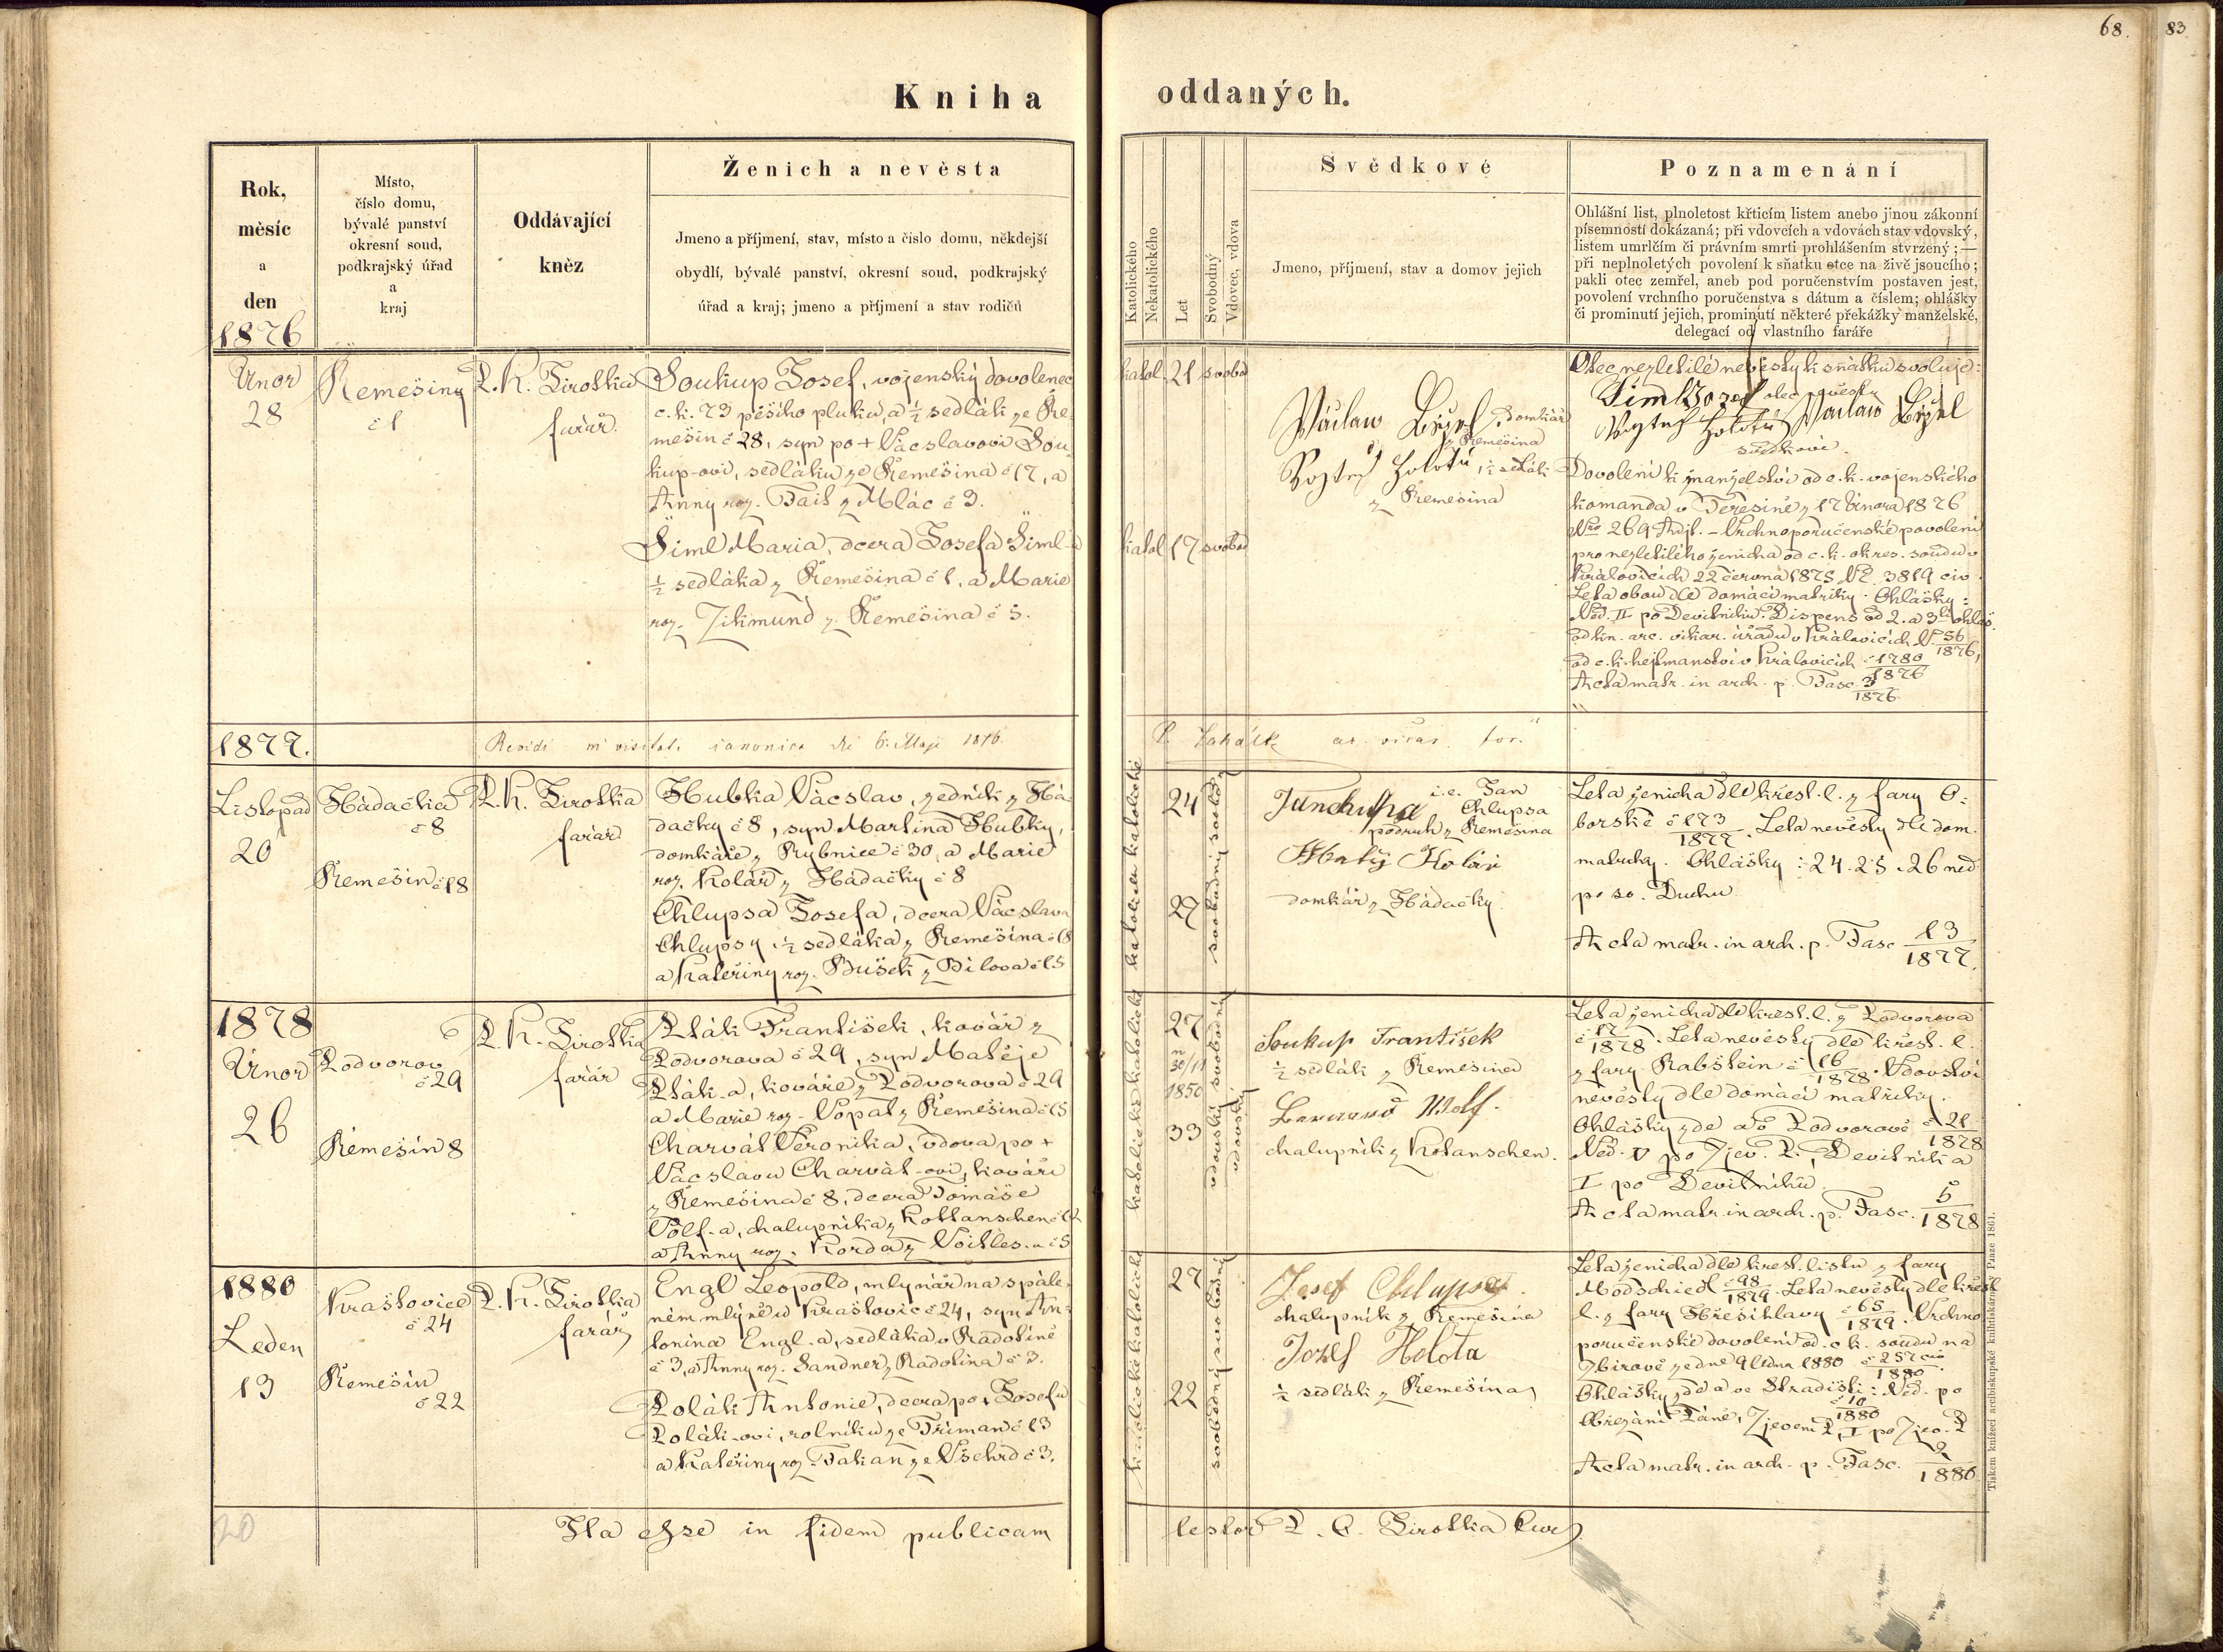 68.
83
Kniha oddaných.
Rok,
měsíc
a
den
1876
Místo,
číslo domu,
bývalé panství
okresní soud,
podkrajský úřad
a
kraj
Oddávající
kněz
Ženich a nevěsta
Jmeno a příjmení, stav, místo a číslo domu, někdejší
obydlí, bývalé panství, okresní soud, podkrajský
úřad a kraj; jmeno a příjmení a stav rodičů
Katolického
Nekatolického
Let
Svobodný
Vdovec, vdova
Svědkové
Jmeno, příjmení, stav a domov jejich
Poznamenání
Ohlášní list, plnoletost křticím listem anebo jinou zákonní
písemností dokázaná; při vdovcích a vdovách stav vdovský,
listem umrlčím či právním smrti prohlášením stvrzený; —
při neplnoletých povolení k sňatku otce na živě jsoucího;
pakli otec zemřel, aneb pod poručenstvím postaven jest,
povolení vrchního poručenstva s dátum a číslem; ohlášky
či prominutí jejich, prominutí některé překážky manželské,
delegací od vlastního faráře
Únor
28
Řemešiny
č 1
P. K. Sirotka
farář.
Soukup Josef, vojenský dovolenec
c. k. 73 pěšího pluku, a ½ sedlák ze Ře-
mešin č 28, syn po + Václavovi Sou-
kup-ovi, sedláku ze Řemešina č 17, a
Anny roz. Fait z Mlác č 3.
Šiml Maria, dcera Josefa Šiml-a
½ sedláka z Řemešina č 1, a Marie
roz. Zikmund z Řemešina č 5.
katol. 21 svobod
katol 17 svobod
Václaw Bízel, domkář
z Řemešina
Vojtěch Holota, ½ sedlák
z Řemešina
Otec nezletilé nevěsty k sňatku svoluje:
Šiml Jozef otec nevěsty
Vojtěch Holota Václaw Bízel
svědkové.
Dovolení k manželství od c. k. vojenského
komanda v Terešíně z 17 Února 1876
Nro 269 Adjt. – Vrchnoporučenské povolení
pro nezletilého ženicha od c. k. okres. soudu v
Královicích 22 června 1875 Nč. 3819 civ.
Leta obou dle domácí matriky. Ohlášky:
Něd. II po Devítníku. Dispens od 2. a 3tí ohláš.
od kn. arc. vikar. úřadu v Královicích Nč. 56/1876,
od c. k. hejtmanství v Kralovicích č 1780/1876
Acta matr. in arch. p. Fasc. 3/1876.
1877.
Revidi in visitat. canonica die 6. Maji 1876.
Listopad
20
Hádačka
č 8
Řemešín č 18
P. K. Sirotka
farář
Hubka Václav, zedník z Há-
dačky č 8, syn Martina Hubky,
domkáře z Rybnice č 30, a Marie
roz. Kolář z Hádačky č 8
Chlupsa Josefa, dcera Václava
Chlupsy, ½ sedláka z Řemešína č 18
a Kateřiny roz. Bušek z Bílova č 15
24
27
i.e. Jan
Chlupsa
podruh z Řemešina
Matěj Kolár
domkář z Hádačky.
Leta ženicha dle křest. l. z fary O-
borské č 173/1877. Leta nevěsty dle dom.
matriky. Ohlášky: 24. 25. 26 něd.
po sv. Duchu
Acta matr. in arch. p. Fasc 13/1877.
1878
Únor
26
Podvorov
č 29
Řemešín 8
P. K. Sirotka
farář
Pták František, kovář z
Podvorova č 29, syn Matěje
Pták-a, kováře z Podvorova č 29
a Marie roz. Vopat z Řemešina č 15
Charvát Veronika, vdova po +
Václavu Charvát-ovi, kováři
z Řemešina č 8, dcera Tomáše
Volf-a, chalupníka z Kottanschen č 12
a Anny roz. Korda z Voitles. č 5
27
n 30/11
1850
33
Soukup František
½ sedlák z Řemešina
Bernard Wolf.
chalupník z Kotanschen.
Leta ženicha dle křest. l. z Podvorova
č 17/1878. Leta nevěsty dle křest. l.
z fary Rabštein č 16/1878. Vdovství
nevěsty dle domácí matriky.
Ohlášky zde a v Podvorově č 21/1878
Něd. V po Zjev. P., Devítník a
I po Devítníku
Acta matr. in arch. p. Fasc. 5/1878
1880
Leden
13
Krašovice
č 24
Řemešín
č 22
P. K. Sirotka
farář
Engl Leopold, mlynář na spále-
ném mlýně u Krašovic č 24, syn An-
tonína Engl-a, sedláka v Radotíně
č 3, a Anny roz. Sandner z Radotina č 3.
Polák Antonie, dcera po + Josefu
Polák-ovi, rolníku ze Tříman č 13
a Kateřiny roz. Fakan ze Všehrd č 3.
27
22
Josef Chlupsa.
chalupník z Řemešina
Jozef Holota
½ sedlák z Řemešina
Leta ženicha dle křest. listu z fary
Modschiedl č 98/1879. Leta nevěsty dle křest
l. z fary Hřešihlavy č 65/1879. Vrchno
poručenské dovolení od c. k. soudu na
Zbirově ze dne 9 ledna 1880 č 257 civ/1880.
Ohlášky zde a ve Hradišti: Něd. po č 10/1880
Obřezání Páně, Zjevení P, I po Zjev. P
Acta matr. in arch. p. Fasc. 2/1880
20
Ita esse in fidem publicam
testor P. C. Sirotka
Tiskem knížecí arcibiskupské knihtiskárny v Praze 1861.